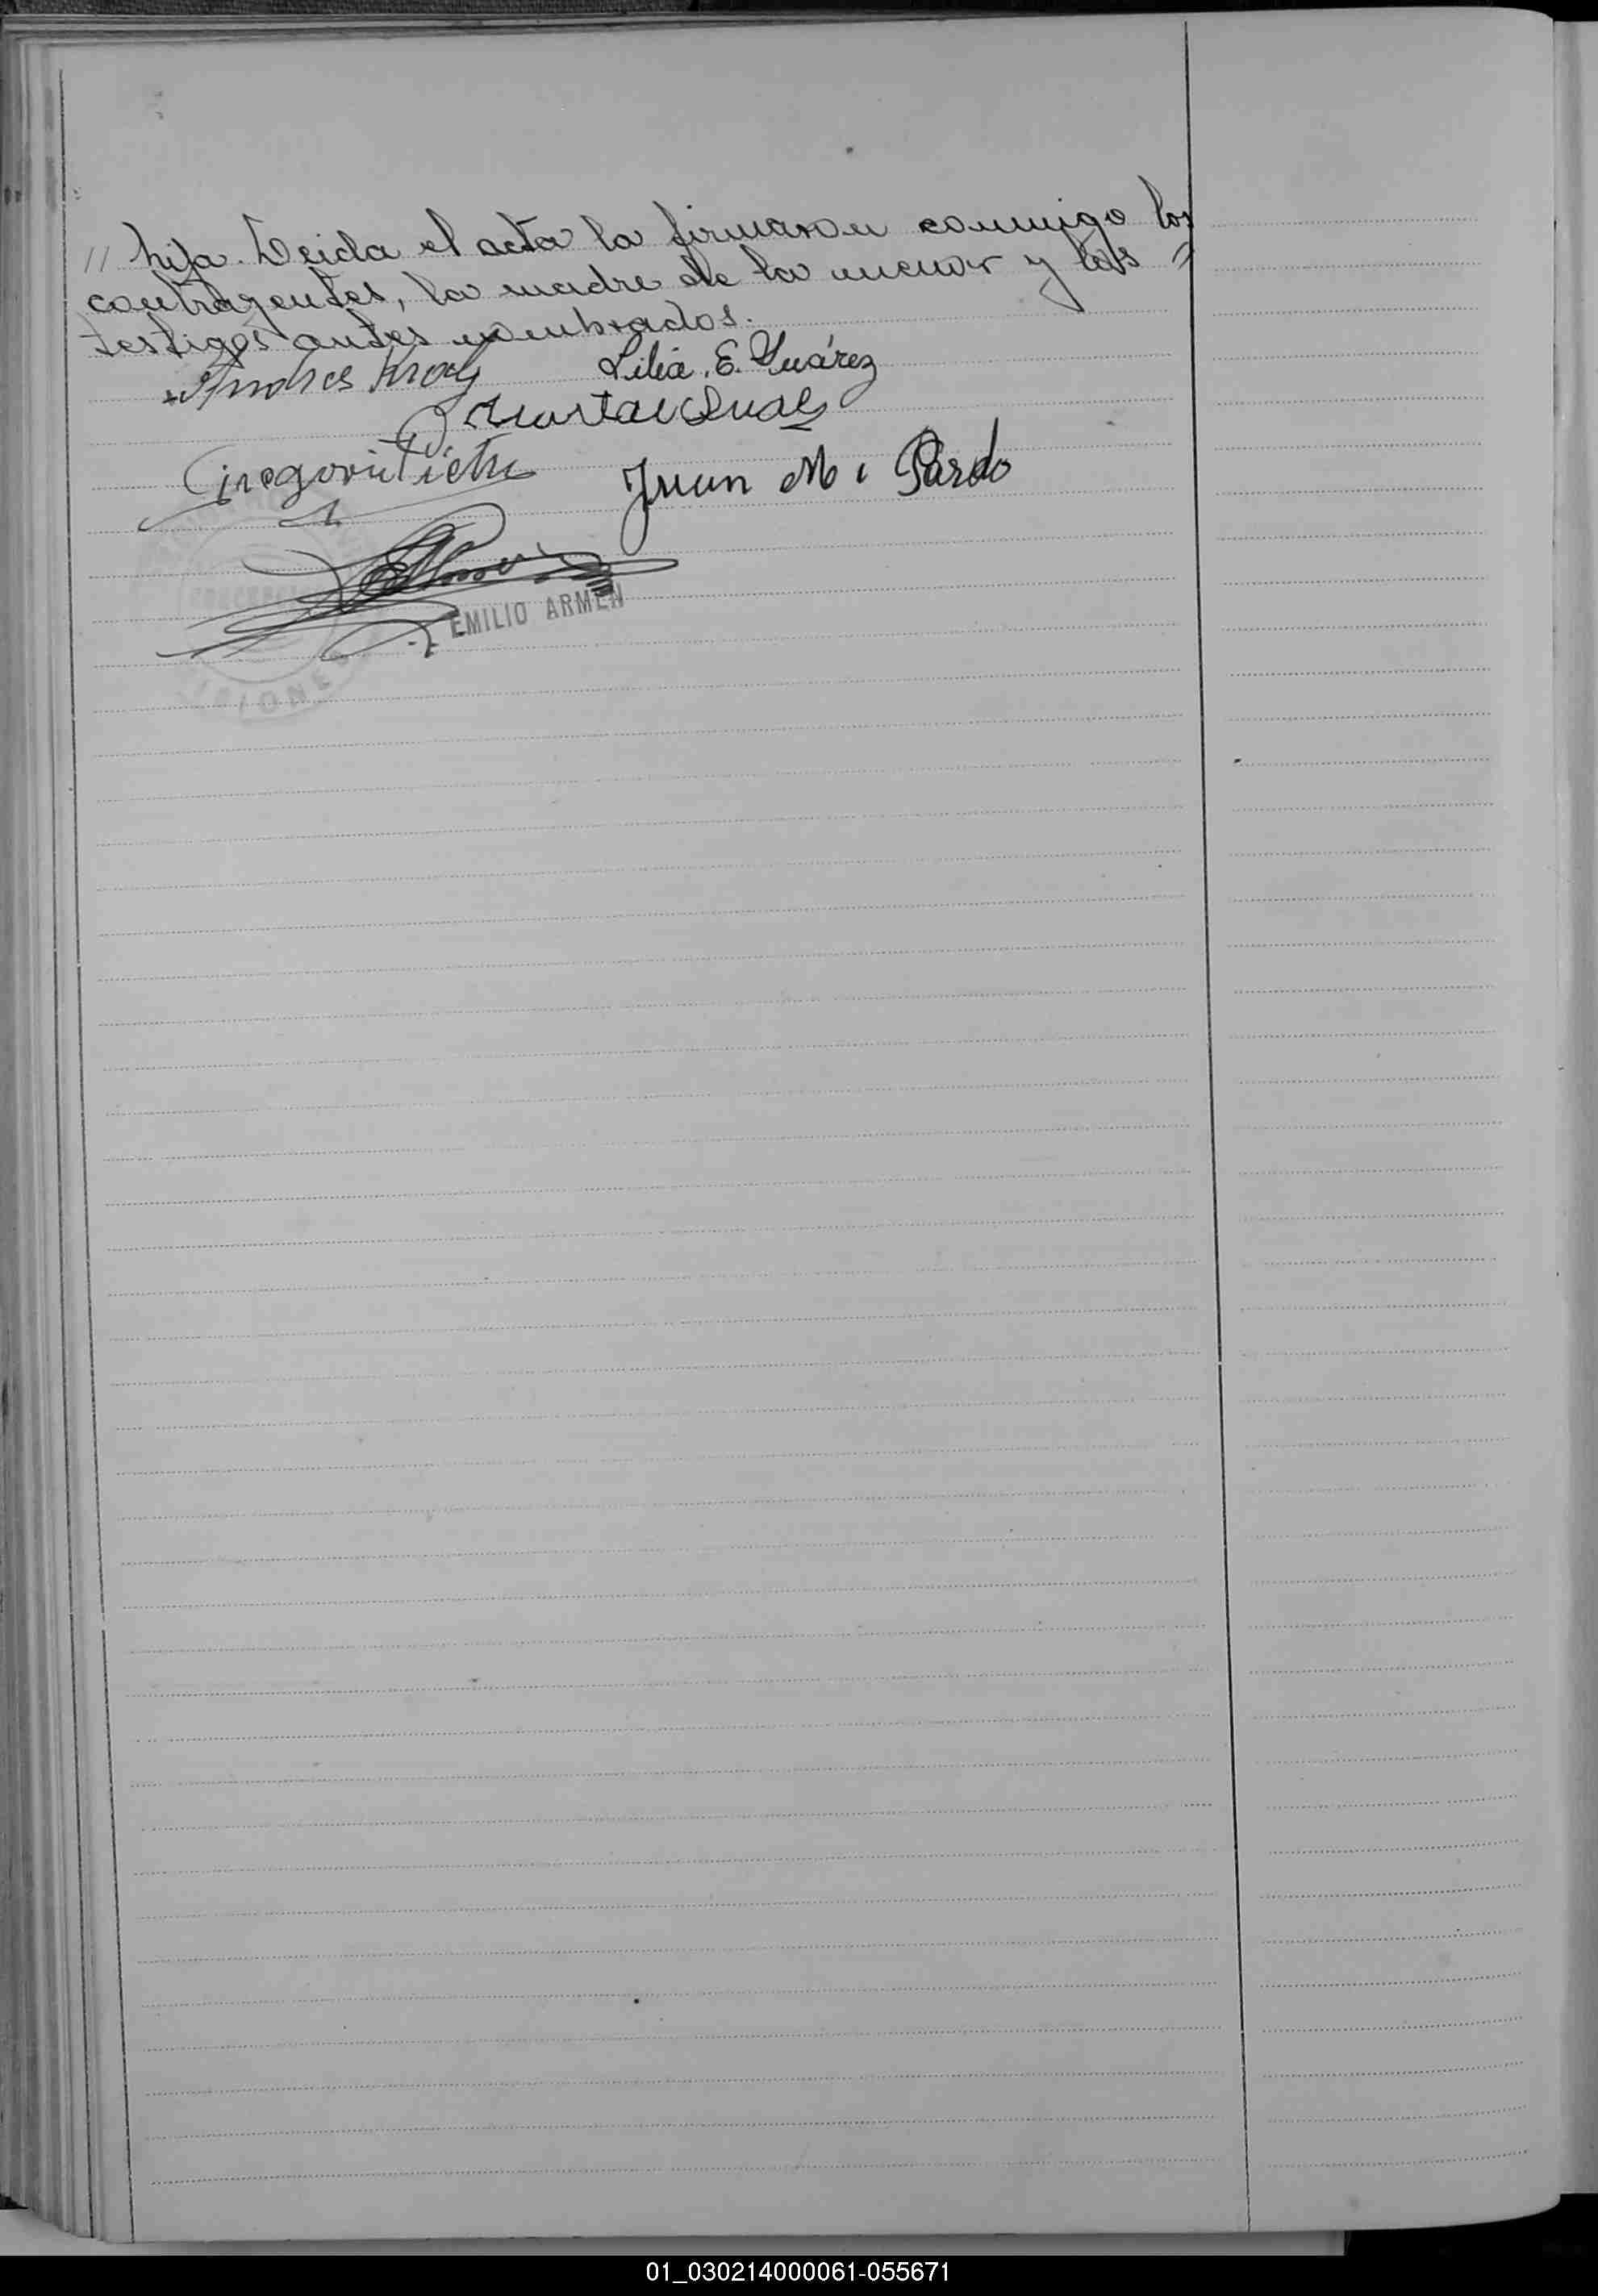 // hija. Leida el acta la firmaron conmigo los
contrayentes, la madre de la menor y los //
testigos antes nombrados.
Andres Kroly Lilia. E. Suárez
Juan M. Pardo
EMILIO ARMEN
MISIONES
01_030214000061-055671